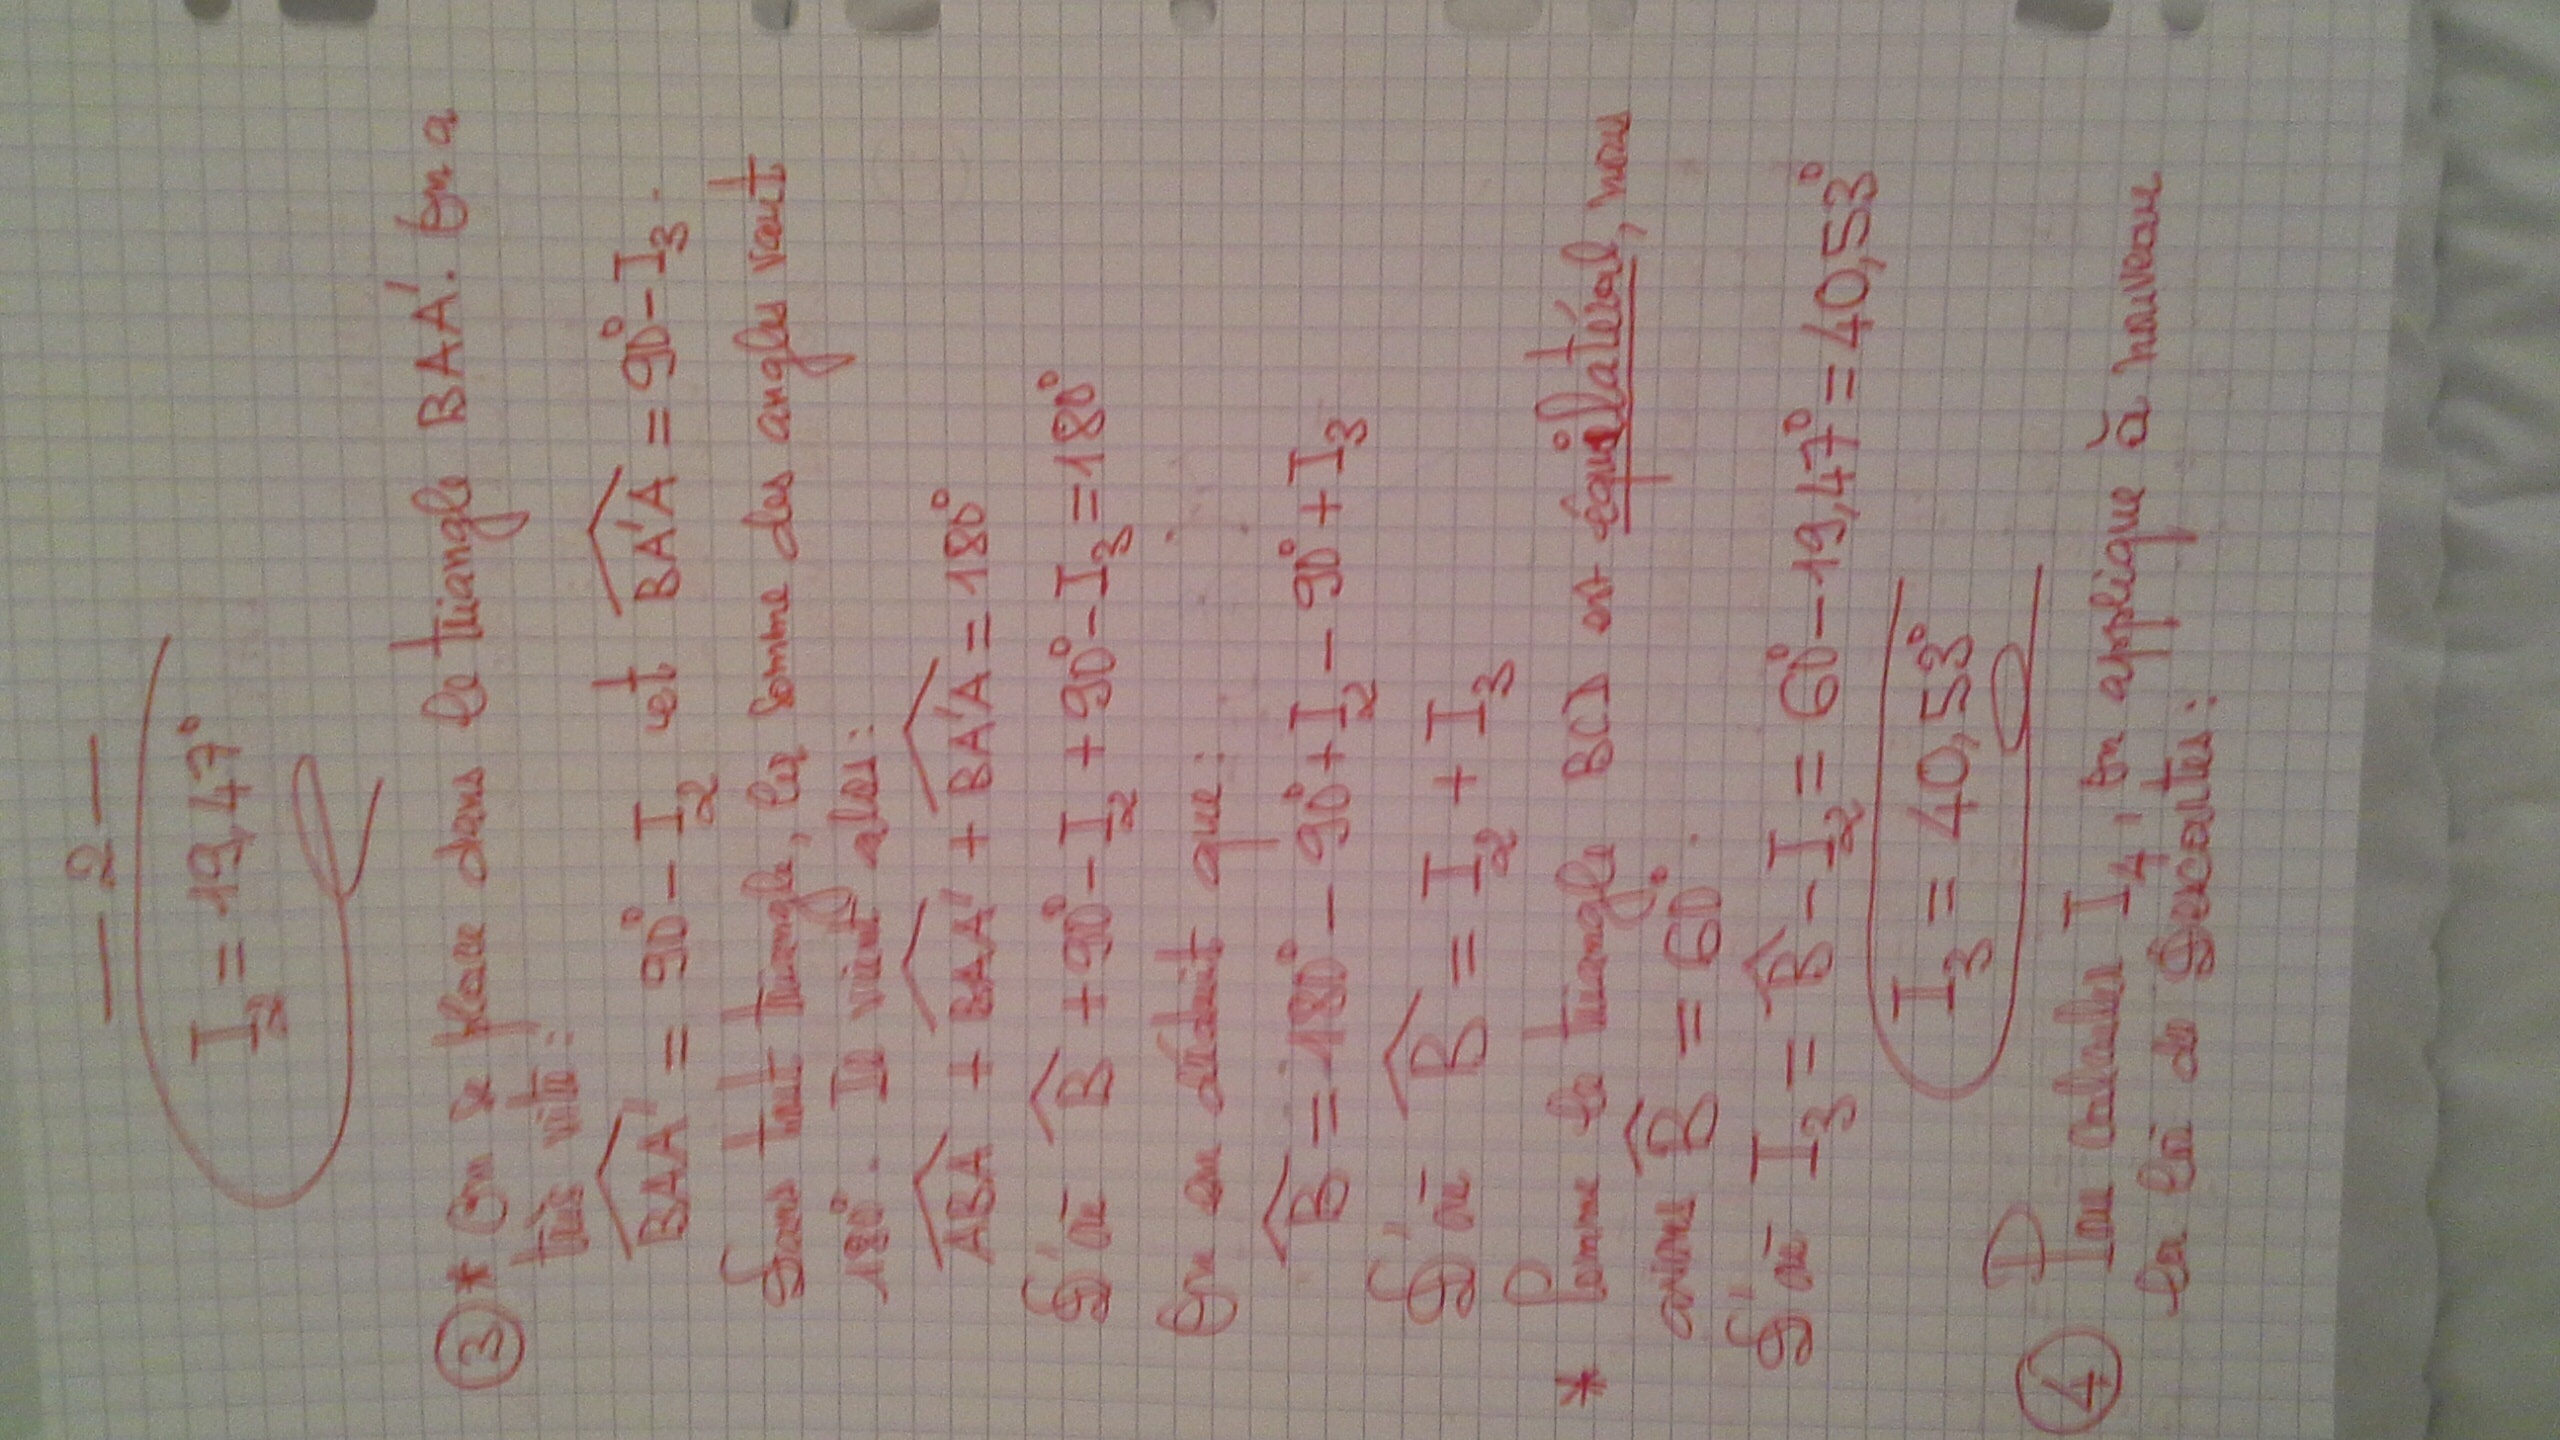 — 2 —
I₂ = 19,47°
③ * On se place dans le triangle BAA'. On a
très vite :
BAA' = 90° - I₂ et BA'A = 90° - I₃.
Dans tout triangle, la somme des angles vaut
180°. Il vient alors :
ABA' + BAA' + BA'A = 180°
D'où B + 90° - I₂ + 90° - I₃ = 180°
On en déduit que :
B = 180° - 90° + I₂ - 90° + I₃
D'où B = I₂ + I₃
* Comme le triangle BCD est équilatéral, nous
avions B = 60°.
D'où I₃ = B - I₂ = 60° - 19,47° = 40,53°
I₃ = 40,53°
④ Pour calculer I₄, on applique à nouveau
la loi de Descartes :